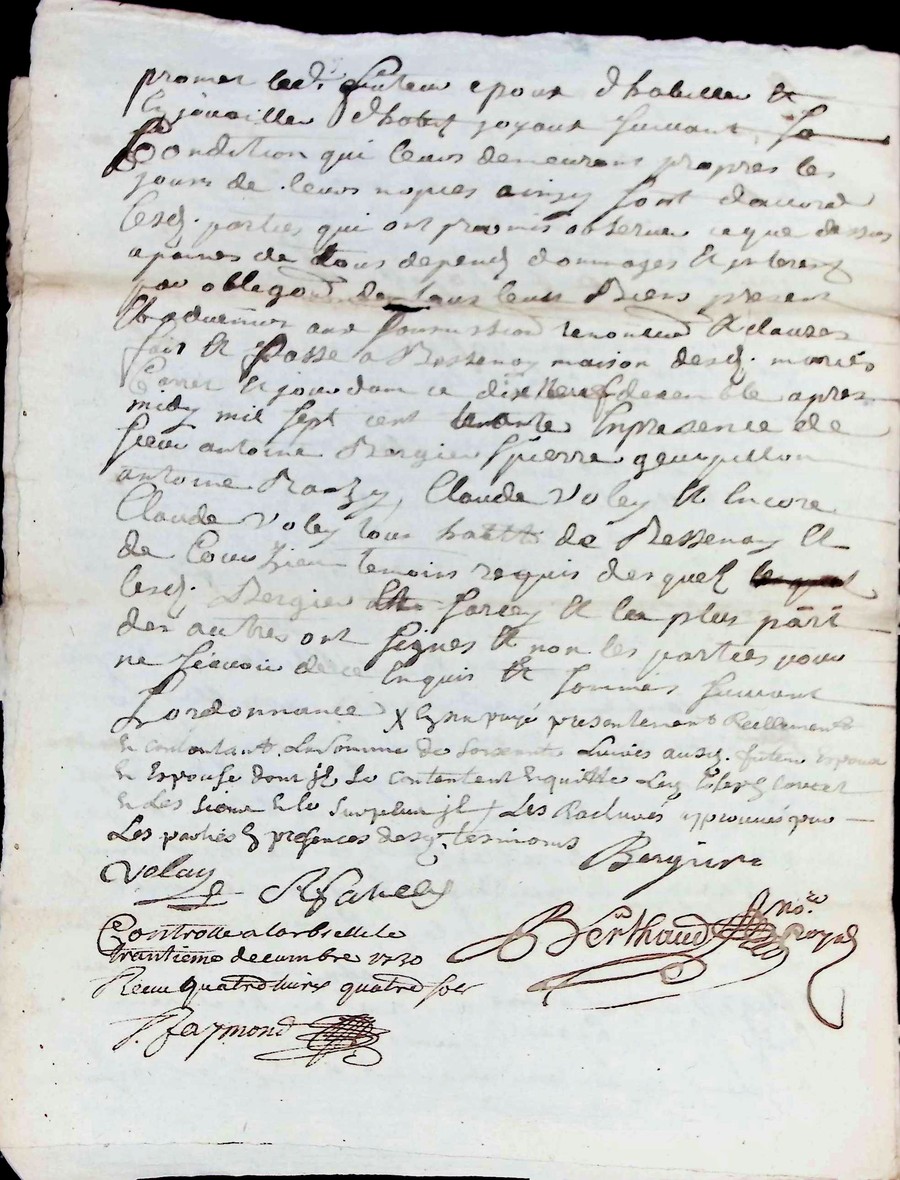 promet led. futeur epoux d'habiller et
Enjoüailler d'habits joyaux suivant Sa
Condition qui leurs demeureront propres les
jours de leurs nopces ainsy sont d'accord
lesd. parties qui ont promis observer ce que dessus
a peines de tous depend dommages et interest
par obligaon de tous leurs Biens present
et advenirs aux soumission renoncion et clauses
fait et Passé a Bessenay maison desd. mariés
et jourdam ce dix neuf decembre apres
midy mil sept cent trante En presence de
sieur antoine Bergier pierre goupillon
antoine Claude Voley et Encore
Claude Voley tous habtt de Bessenay et
de Courzieu temoins requis desquel
lesd. Bergier et les plus part
des autres ont signés et non les parties pour
ne sçavoir de ce Enquis et sommés suivant
Lordonnance X payé presentement Reellement
En contant La somme de Livres ausd. futeur Espoux
En Espouse dont jl se contentent En quitte
En Les sieur En le surplus jl Les Raclurés approuvés par
Les parties En presences desd. tesmoins
Bergier
Volay
Bérthaud No.re royal
Controlle a larbrelle le
trantieme decembre 1730
Receu quatre livres quatre sols
Raymond